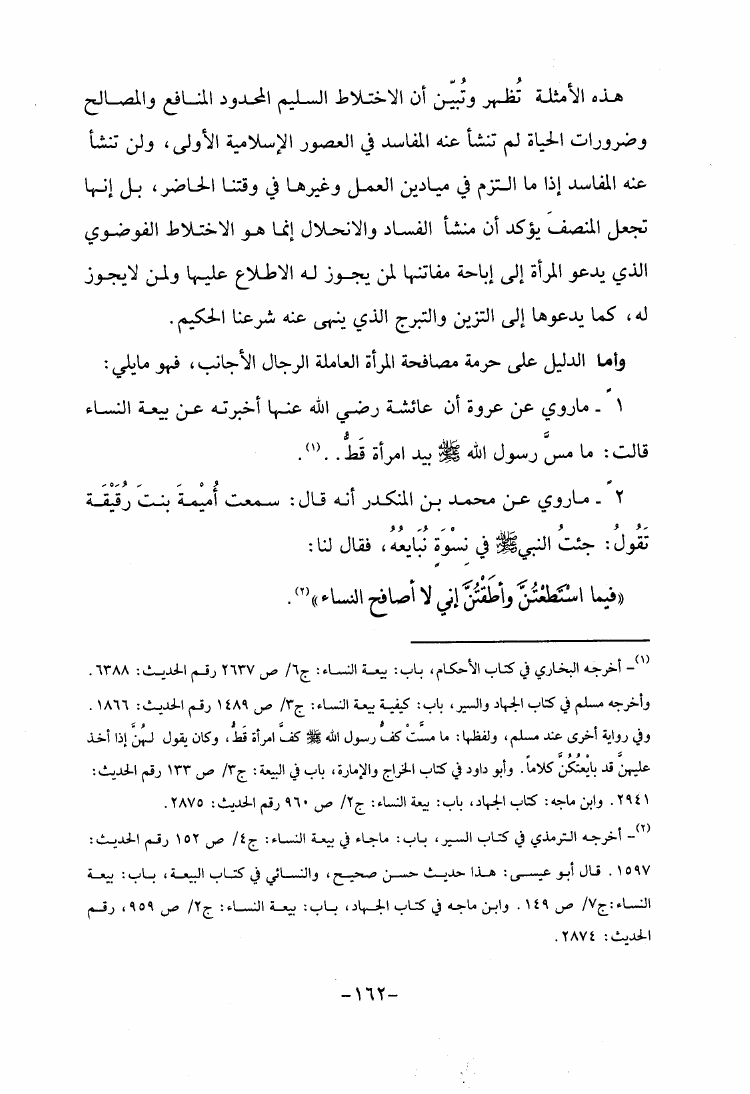 هذه الأمثلة تُظهر وتُبيّن أن الاختلاط السليم المحدود المنافع والمصالح
وضرورات الحياة لم تنشأ عنه المفاسد في العصور الإسلامية الأولى، ولن تنشأ
عنه المفاسد إذا ما التزم في ميادين العمل وغيرها في وقتنا الحاضر، بل إنها
تجعل المنصفَ يؤكد أن منشأ الفساد والانحلال إنما هو الاختلاط الفوضوي
الذي يدعو المرأة إلى إباحة مفاتنها لمن يجوز له الاطلاع عليها ولمن لايجوز
له، كما يدعوها إلى التزين والتبرج الذي ينهى عنه شرعنا الحكيم.
وأما الدليل على حرمة مصافحة المرأة العاملة الرجال الأجانب، فهو مايلي:
١ً ـ ماروي عن عروة أن عائشة رضي الله عنها أخبرته عن بيعة النساء
قالت: ما مسَّ رسول الله ﷺ بيد امرأة قَطُّ..(١).
٢ً ـ ماروي عن محمد بن المنكدر أنه قال: سمعت أُمَيْمةَ بنتَ رُقَيْقَة
تَقُولُ: جئتُ النبيﷺ في نِسْوَةٍ نُبَايعُهُ، فقال لنا:
«فيما اسْتَطَعْتُنَّ وأَطَقْتُنَّ إني لا أصافح النساء»(٢).
(١)ـ أخرجه البخاري في كتاب الأحكام، باب: بيعة النساء: ج٦/ ص ٢٦٣٧ رقم الحديث: ٦٣٨٨.
وأخرجه مسلم في كتاب الجهاد والسير، باب: كيفية بيعة النساء: ج٣/ ص ١٤٨٩ رقم الحديث: ١٨٦٦.
وفي رواية أخرى عند مسلم، ولفظها: ما مسَّتْ كفُّ رسول الله ﷺ كفَّ امرأة قَطُّ، وكان يقول لهُنَّ إذا أخذ
عليهنَّ قد بايَعْتُكُنَّ كلاماً. وأبو داود في كتاب الخراج والإمارة، باب في البيعة: ج٣/ ص ١٣٣ رقم الحديث:
٢٩٤١. وابن ماجه: كتاب الجهاد، باب: بيعة النساء: ج٢/ ص ٩٦٠ رقم الحديث: ٢٨٧٥.
(٢)ـ أخرجه الترمذي في كتاب السير، باب: ماجاء في بيعة النساء: ج٤/ ص ١٥٢ رقم الحديث:
١٥٩٧. قال أبو عيسى: هذا حديث حسن صحيح، والنسائي في كتاب البيعة، باب: بيعة
النساء:ج٧/ ص ١٤٩. وابن ماجه في كتاب الجهاد، باب: بيعة النساء: ج٢/ ص ٩٥٩، رقم
الحديث: ٢٨٧٤.
-١٦٢-